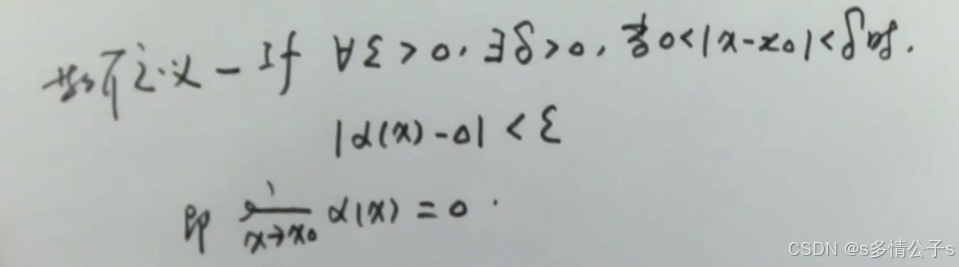 数学定义 - If ∀ε>0, ∃δ>0, 当0<|x-x₀|<δ时.
|α(x)-0|<ε
即 lim x→x₀ α(x)=0.
CSDN @s多情公子s